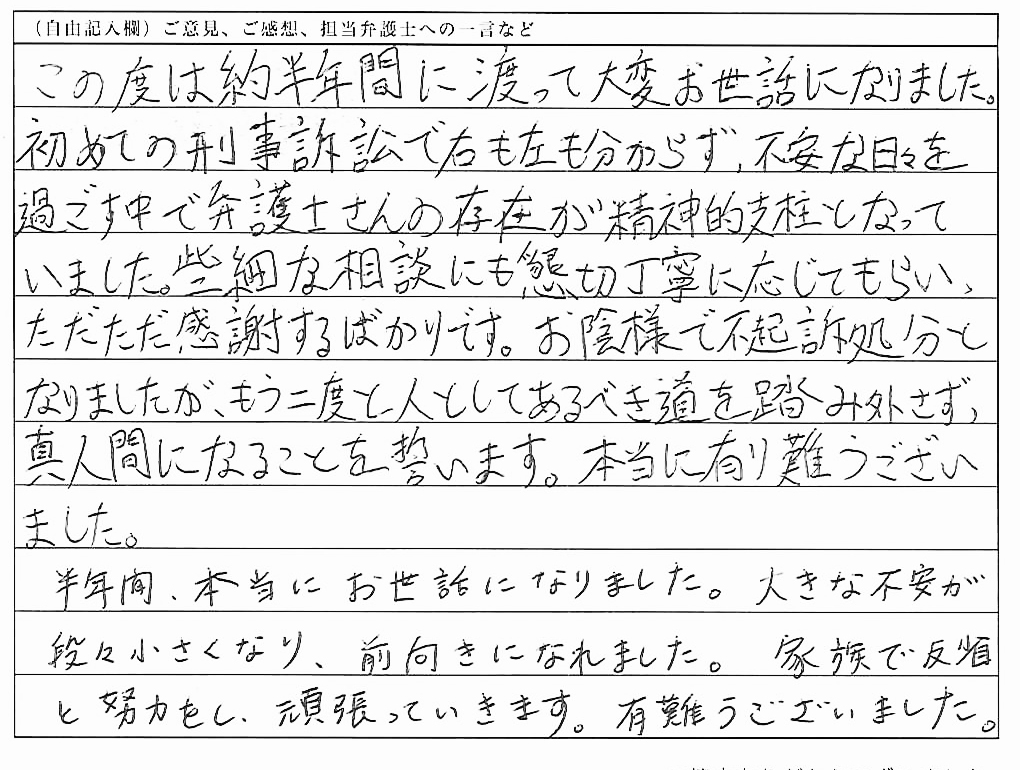 （自由記入欄）ご意見、ご感想、担当弁護士への一言など
この度は約半年間に渡って大変お世話になりました。
初めての刑事訴訟で右も左も分からず、不安な日々を
過ごす中で弁護士さんの存在が精神的支柱となって
いました。些細な相談にも懇切丁寧に応じてもらい、
ただただ感謝するばかりです。お陰様で不起訴処分と
なりましたが、もう二度と人としてあるべき道を踏み外さず、
真人間になることを誓います。本当に有り難うござい
ました。
半年間、本当にお世話になりました。大きな不安が
段々小さくなり、前向きになれました。家族で反省
と努力をし、頑張っていきます。有難うございました。